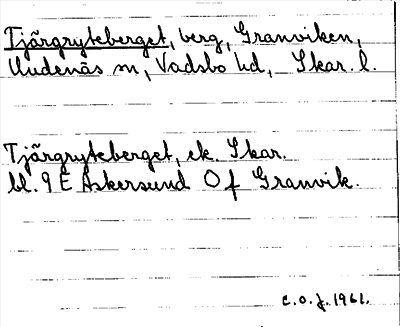 Tjärgryteberget, berg, Granviken,
Undenäs sn, Vadsbo hd, Skar. l.
Tjärgryteberget, ek. Skar.
bl. 9 E Askersund Of Granvik.
C.O.J. 1961.